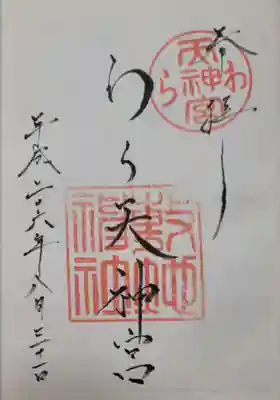 奉拝
わら天神宮
わら天神宮
敷地神社
平成二十六年八月三十一日